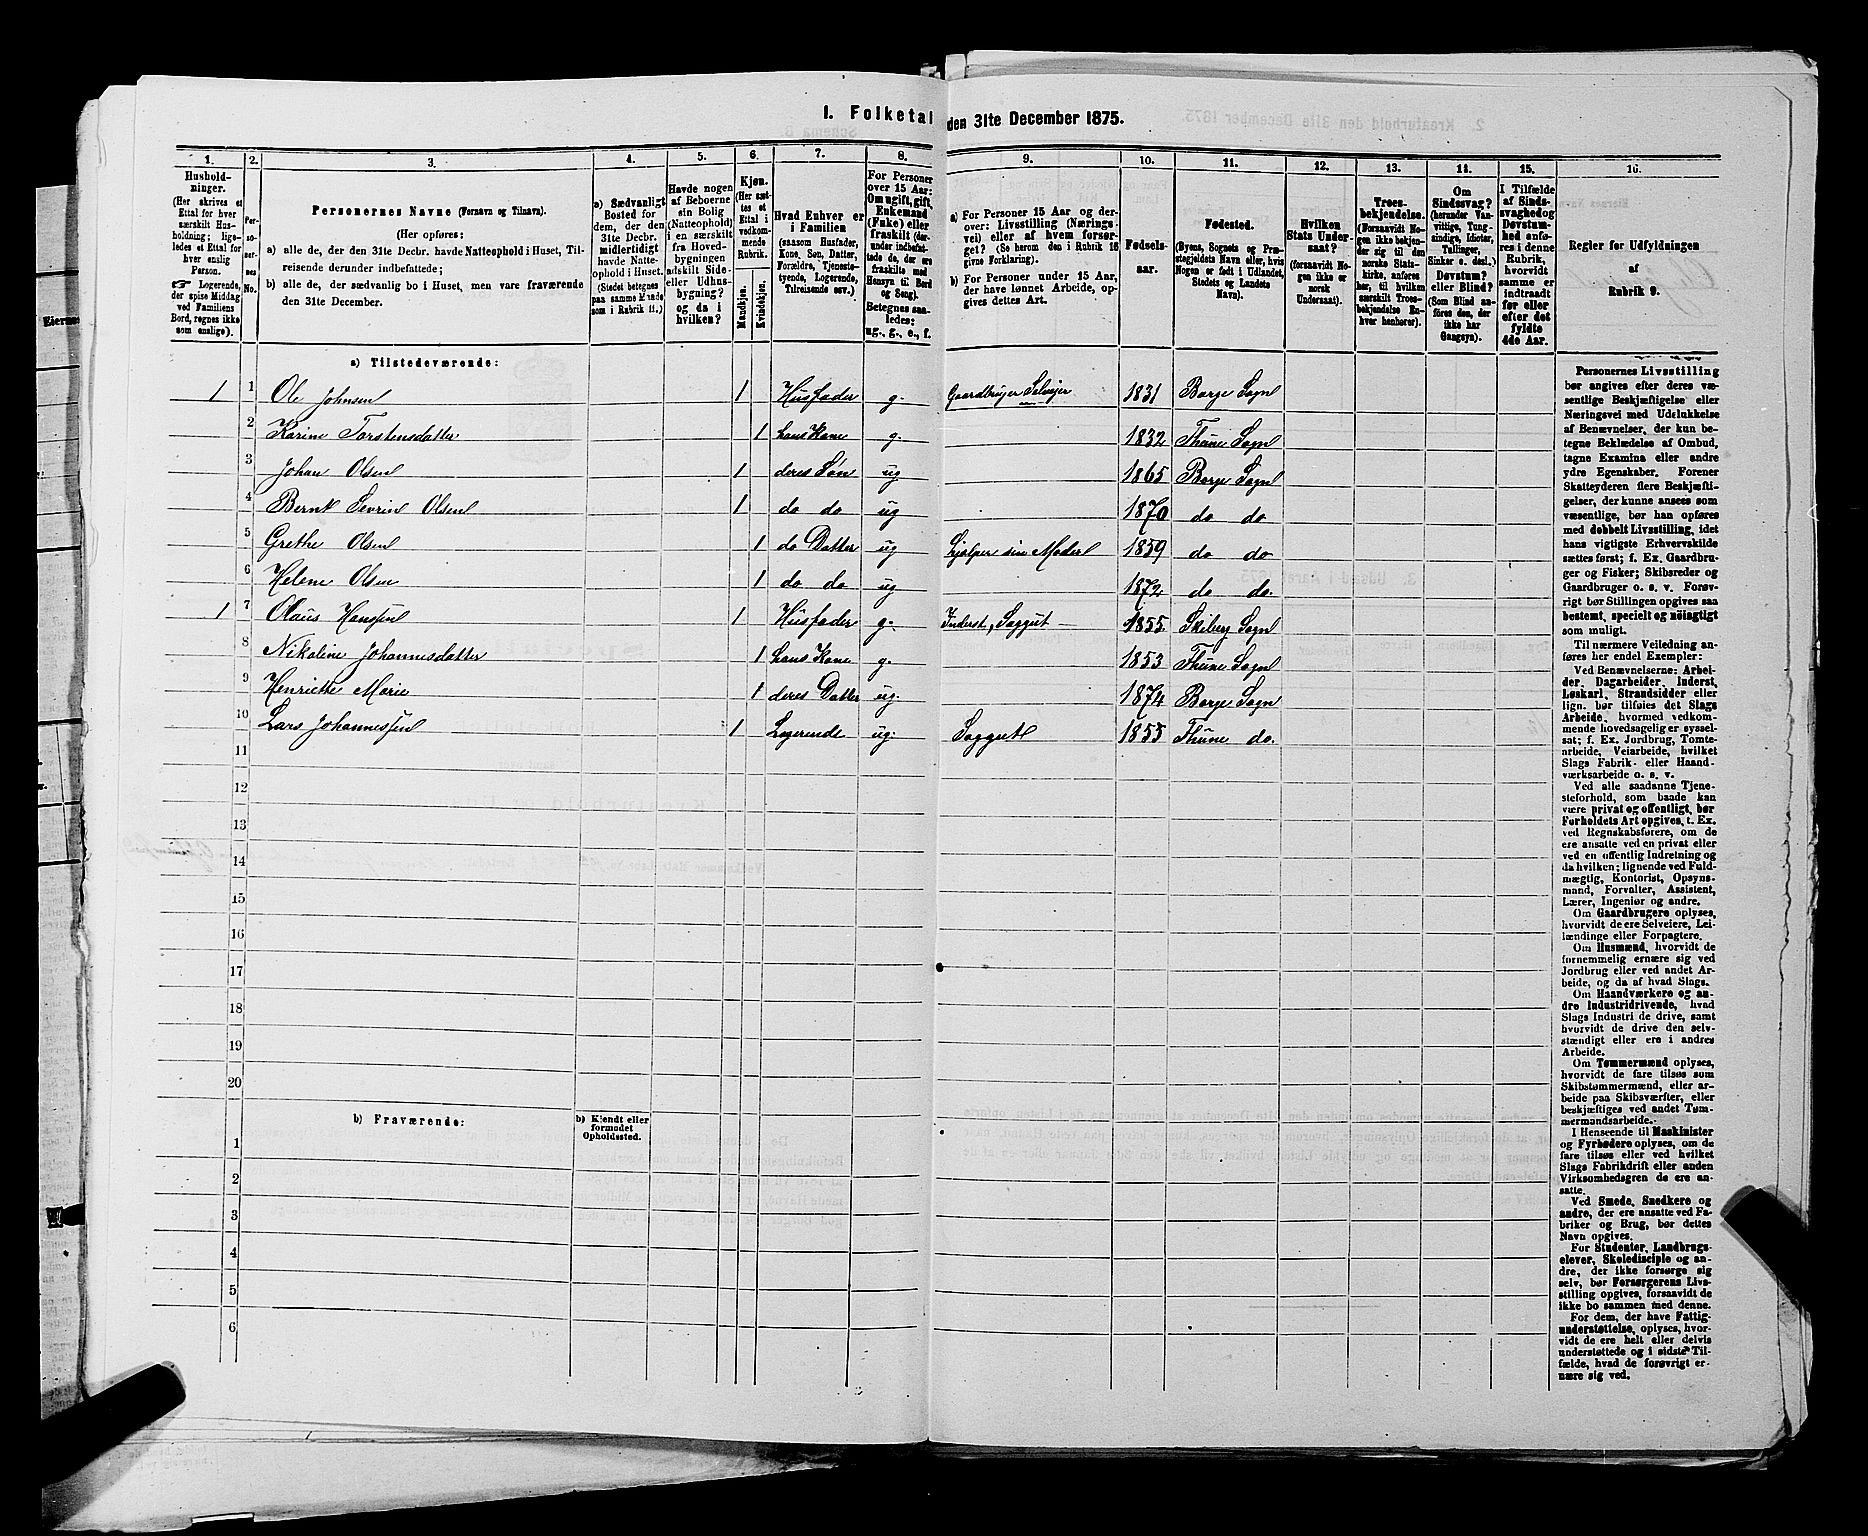 1. Folketal den 31te December 1875.
1. 2. 3. 4. 5. 6. 7. 8. 9. 10. 11. 12. 13. 14. 15. 16.
Hushold-
ninger.
(Her skrives et
Ettal for hver
særskilt Hus-
holdning; lige-
ledes et Ettal for
hver enslig
Person.
☞ Logerende,
der spise Middag
ved Familiens
Bord, regnes ikke
som enslige).
Per-
so-
ner-
nes
No.
Personernes Navne (Fornavn og Tilnavn).
(Her opføres:
a) alle de, der den 31te Decbr. havde Natteophold i Huset, Til-
reisende derunder indbefattede;
b) alle de, der sædvanlig bo i Huset, men vare fraværende
den 31te December.
a) Sædvanligt
Bosted for
dem, der den
31te Decbr.
midlertidigt
havde Natte-
ophold i Huset.
(Stedet betegnes
paa samme Maade
som i Rubrik 11.)
Havde nogen
af Beboerne
sin Bolig
(Natteophold)
i en særskilt
fra Hoved-
bygningen
adskilt Side-
eller Udhus-
bygning?
og da i
hvilken?
Kjøn.
(Her sæt-
tes et
Ettal i
vedkom-
mende
Rubrik.
Mandkjøn.
Kvindekjøn.
Hvad Enhver er
i Familien
(saasom Husfader,
Kone, Søn, Datter,
Forældre, Tjeneste-
tyende, Logerende,
Tilreisende osv.)
For Personer
over 15 Aar:
Om ugift, gift,
Enkemand
(Enke) eller
fraskilt (der-
under indbefat-
tede de, der ere
fraskilte med
Hensyn til Bord
og Seng).
Betegnes saa-
ledes:
ug., g., e., f.
a) For Personer 15 Aar og der-
over: Livsstilling (Nærings-
vei) eller af hvem forsør-
get? (Se herom den i Rubrik 16
givne Forklaring).
b) For Personer under 15 Aar,
der have lønnet Arbeide, op-
gives dettes Art.
Fødsels-
aar.
Fødested.
(Byens, Sognets og Præ-
stegjeldets Navn eller, hvis
Nogen er født i Udlandet,
Stedets og Landets
Navn).
Hvilken
Stats Under-
saat?
(forsaavidt No-
gen ikke er
norsk
Undersaat).
Troes-
bekjendelse.
(Forsaavidt No-
gen ikke bekjen-
der sig til den
norske Stats-
kirke, anføres
her, til hvilken
særskilt Troes-
bekjendelse En-
hver henhører).
Om
Sindssvag?
(herunder Van-
vittige, Tung-
sindige, Idioter,
Tullinger,
Sinker o. desl.)
Døvstum?
eller Blind?
(Som Blind an-
føres den, der
ikke har
Gangsyn).
I Tilfælde
af Sinds-
svaghed og
Døvstum-
hed anfø-
res i denne
Rubrik,
hvorvidt
samme er
indtraadt
før eller
efter det
fyldte
4de Aar.
Regler for Udfyldningen
af
Rubrik 9.
a) Tilstedeværende:
1 1 Ole Johnsen 1 Husfader g. Gaardbruger Selveier 1831 Borge Sogn
2 Karine Torstensdatter 1 hans Kone g. 1832 Thune Sogn
3 Johan Olsen 1 deres Søn ug 1865 Borge Sogn
4 Bernt Sevrin Olsen 1 do do ug 1870 do do
5 Grethe Olsen 1 do Datter ug hjælper sin Moder 1859 do do
6 Helene Olsen 1 do do ug 1872 do do.
1 7 Olaus Hansen 1 Husfader g. Inderst, Saggut 1855. Skiberg Sogn
8 Nikoline Johannesdatter 1 hans Kone g. 1853 Thune Sogn
9 Henriette Marie 1 deres Datter ug. 1874 Borge Sogn
10 Lars Johannessen 1 Logerende ug. Saggut 1855 Thune do.
11
12
13
14
15
16
17
18
19
20
b) Fraværende:
b) Kjendt eller
formodet
Opholdssted.
1
2
3
4
5
6
Personernes Livsstilling
bør angives efter deres væ-
sentlige Beskjæftigelse eller
Næringsvei med Udelukkelse
af Benævnelser, der kun be-
tegne Beklædelse af Ombud,
tagne Examina eller andre
ydre Egenskaber. Forener
Skatteyderen flere Beskjæfti-
gelser, der kunne ansees som
væsentlige, bør han opføres
med dobbelt Livsstilling, idet
hans vigtigste Erhvervskilde
sættes først; f. Ex. Gaardbru-
ger og Fisker; Skibsreder og
Gaardbruger o. s. v. Forøv-
rigt bør Stillingen opgives saa
bestemt, specielt og nøiagtigt
som muligt.
Til nærmere Veiledning an-
føres her endel Exempler:
Ved Benævnelserne: Arbei-
der, Dagarbeider, Inderst,
Løskarl, Strandsidder eller
lign. bør tilføies det Slags
Arbeide, hvormed vedkom-
mende hovedsagelig er syssel-
sat; f. Ex. Jordbrug, Tomte-
arbeide, Veiarbeide, hvilket
Slags Fabrik- eller Haand-
værksarbeide o. s. v.
Ved alle saadanne Tjene-
steforhold, som baade kan
være privat og offentligt, bør
Forholdets Art opgives, t. Ex.
ved Regnskabsførere, om de
ere ansatte ved en privat eller
ved en offentlig Indretning og
da hvilken; lignende ved Fuld-
mægtig, Kontorist, Opsyns-
mand, Forvalter, Assistent,
Lærer, Ingeniør og andre.
Om Gaardbrugere oplyses,
hvorvidt de ere Selveiere, Lei-
lændinge eller Forpagtere.
Om Husmænd, hvorvidt de
fornemmelig ernære sig ved
Jordbrug eller ved andet Ar-
beide, og da af hvad Slags.
Om Haandværkere og an-
dre Industridrivende, hvad
Slags Industri de drive, samt
hvorvidt de drive den selv-
stændigt eller ere i andres
Arbeide.
Om Tømmermænd oplyses,
hvorvidt de fare tilsøs som
Skibstømmermænd, eller ar-
beide paa Skibsværfter, eller
beskjæftiges ved andet Tøm-
mermandsarbeide.
I Henseende til Maskinister
og Fyrbødere oplyses, om de
fare tilsøs eller ved hvilket
Slags Fabrikdrift eller anden
Virksomhedsgren de ere an-
satte.
Ved Smede, Snedkere og
andre, der ere ansatte ved Fa-
briker og Brug, bør dettes
Navn opgives.
For Studenter, Landbrugs-
elever, Skoledisciple og an-
dre, der ikke forsørge sig
selv, bør Forsørgerens Livs-
stilling opgives, forsaavidt de
ikke bo sammen med denne.
For dem, der have Fattig-
understøttelse, oplyses, hvor-
vidt de ere helt eller delvis
understøttede og i sidste Til-
fælde, hvad de forøvrigt er-
nære sig ved.